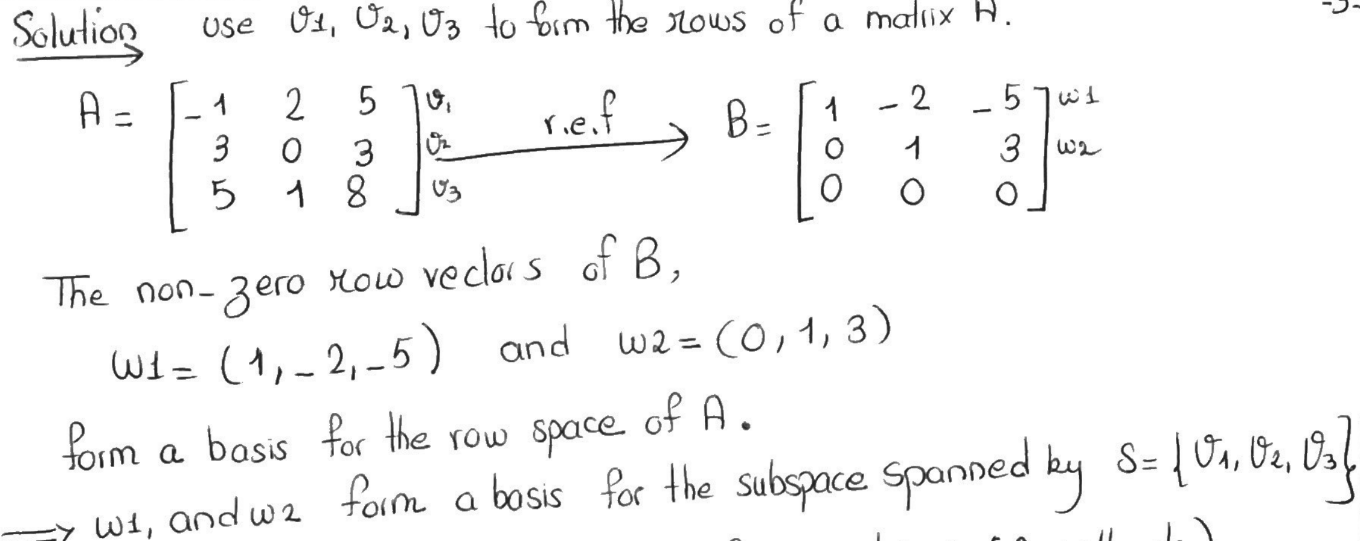 Solution use v1, v2, v3 to form the rows of a matrix A. -3-
A = [ -1 2 5 ] v1 r.e.f B = [ 1 -2 -5 ] w1
3 0 3 v2 0 1 3 w2
5 1 8 v3 0 0 0
The non-zero row vectors of B,
w1 = (1, -2, -5) and w2 = (0, 1, 3)
form a basis for the row space of A.
⇒ w1, and w2 form a basis for the subspace spanned by S = {v1, v2, v3}